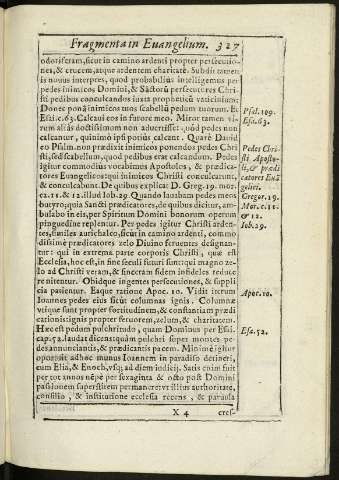 Fragmenta in Euangelium. 327
odoriferam, sicut in camino ardenti propter persecutio-
nes, & crucem, atque ardentem charitatẽ. Subdit tamen
is nouus interpres, quod probabilius intelligemus per
pedes inimicos Domini, & Sãctorũ persecutores Chri-
sti pedibus conculcandos iuxta propheticũ vaticinium:
Donec ponã inimicos tuos scabellũ pedum tuorum. Et
Esaiæ c. 63. Calcaui eos in furore meo. Miror tamen vi-
rum aliâs doctissimum non aduertisse: quòd pedes non
calcantur, quinimò ipsi potiùs calcent. Quarè Dauid
eo Psalm. non prædixit inimicos ponendos pedes Chri
sti, sed scabellum, quod pedibus erat calcandum. Pedes
igitur commodiùs vocabimus Apostolos, & prædica-
tores Euangelicos: qui inimicos Christi conculcarunt,
& conculcabunt. De quibus explicat D. Greg. 19. mor.
ca. 11. & 12. illud Iob. 29. Quando lauabam pedes meos
butyro; quia Sancti prædicatores, de quibus dicitur, am-
bulabo in eis, per Spiritum Domini bonorum operum
pinguedine replentur. Per pedes igitur Christi arden-
tes, similes aurichalco, sicut in camino ardenti, commo
dissimè prædicatores zelo Diuino feruentes designan-
tur: qui in extrema parte corporis Christi, quæ est
Ecclesia, hoc est, in fine seculi futuri sunt: qui magno ze-
lo ad Christi veram, & sinceram fidem infideles reduce
re nitentur. Obidque ingentes persecutiones, & suppli
cia patientur. Eaque ratione Apoc. 10. Vidit iterum
Ioannes pedes eius sicut columnas ignis. Columnæ
vtique sunt propter fortitudinem, & constantiam prædi
cationis: ignis propter feruorem, zelum, & charitatem.
Hæc est pedum pulchritudo, quam Dominus per Esai.
cap. 52. laudat dicens: quàm pulchri super montes pe-
des annunciantis, & prædicantis pacem. Minimè igitur
oportuit adhoc munus Ioannem in paradiso detineri,
cum Elia, & Enoch, vsq; ad diem iudicij. Satis enim fuit
per tot annos nẽpè per sexaginta & octo post Domini
passionem superstitem permanere: vt illius authoritate,
consilio, & institutione ecclesia recens, & paruula
X 4 cres-
Psal. 109.
Esa. 63.
Pedes Chri-
sti Aposto-
li, & prædi
catores Euã
gelici.
Gregor. 19.
Mor. c. 11.
& 12.
Iob. 29.
Apoc. 10.
Esa. 52.